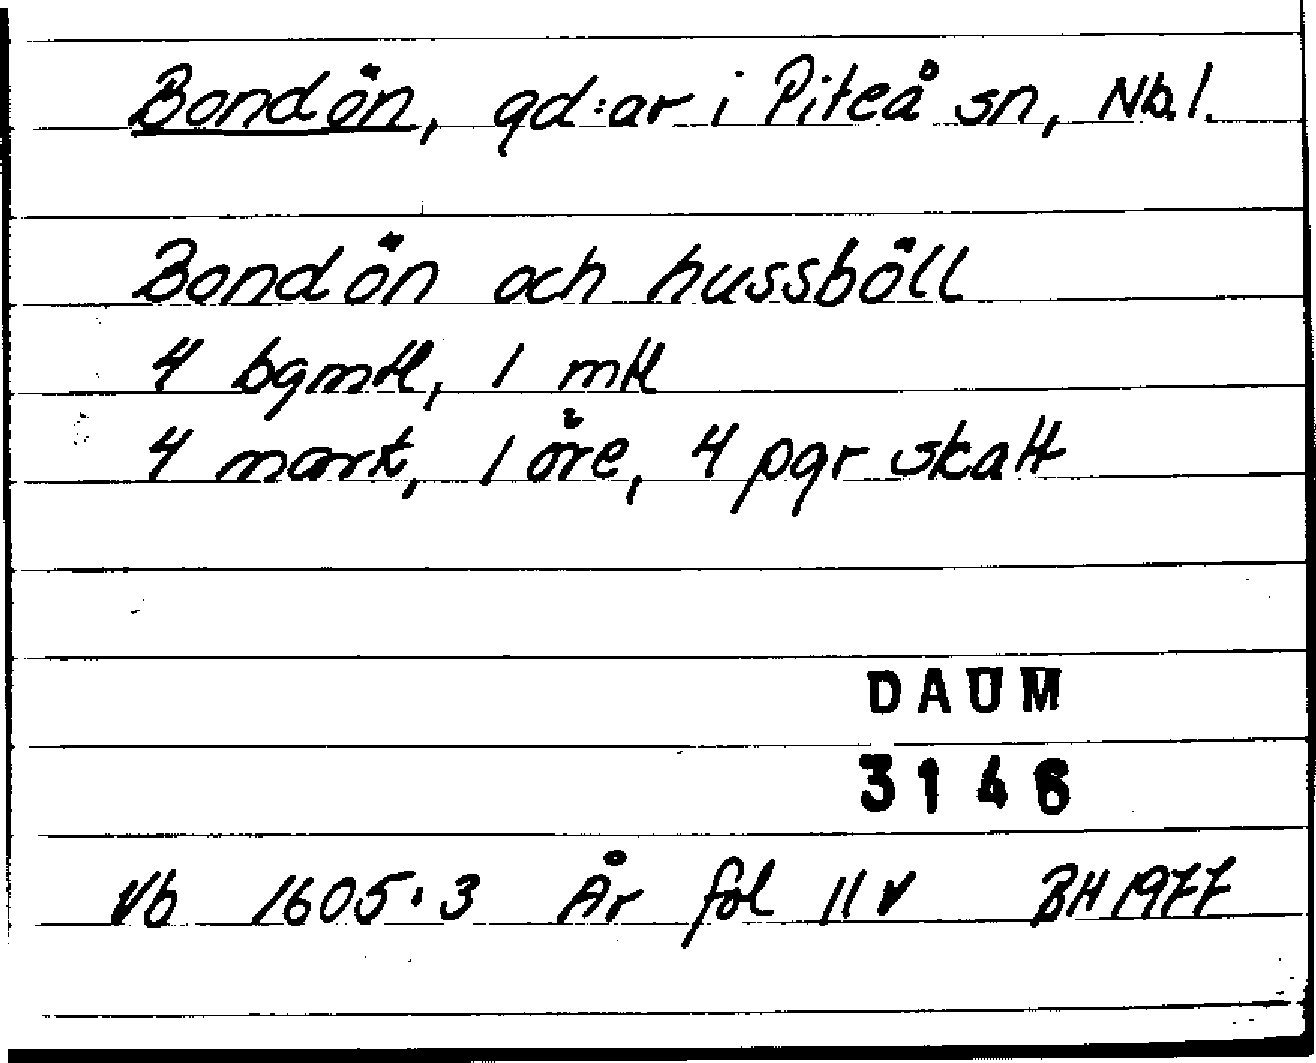 Bondön, gd:ar i Piteå sn, Nb.l.
Bondön och hussböll
4 bgmtl, 1 mtl
4 mark, 1 öre, 4 pgr skatt
DAUM
3146
Vb 1605:3 År fol 11 v BH 1977